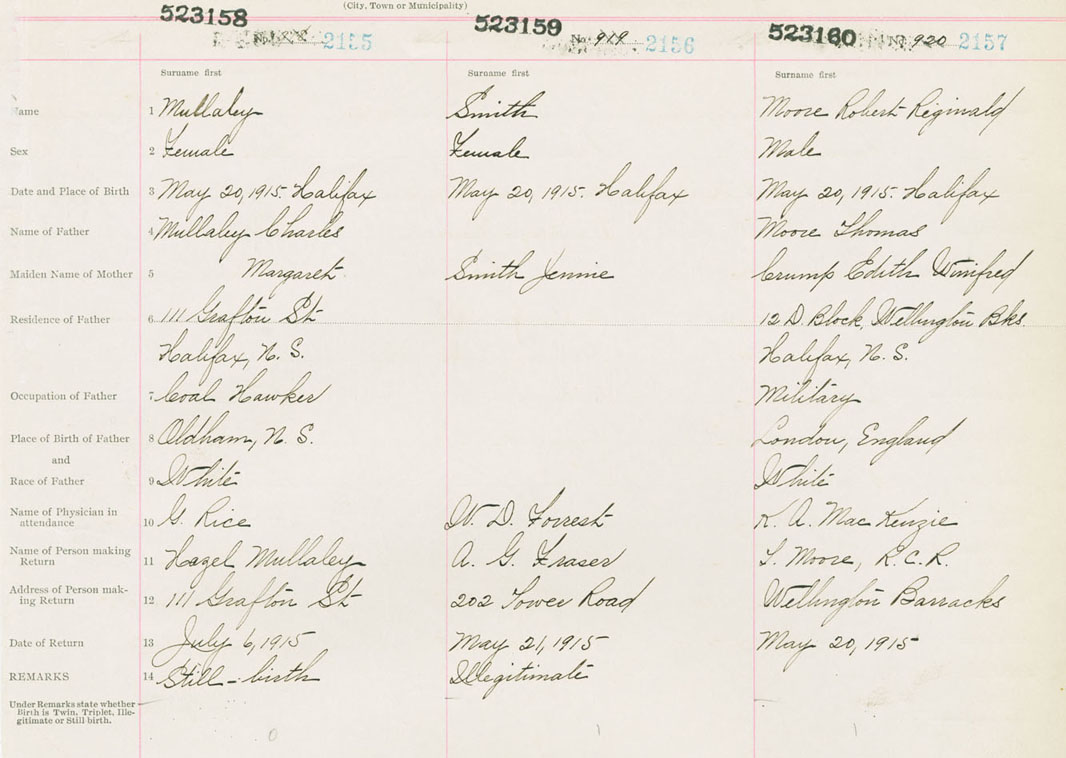 (City, Town or Municipality)
523158 523159 523160
No. 2155 No. 919 2156 No. 920 2157
Surname first Surname first Surname first
Name 1 Mullaley Smith Moore Robert Reginald
Sex 2 Female Female Male
Date and Place of Birth 3 May 20, 1915. Halifax May 20, 1915. Halifax May 20, 1915. Halifax
Name of Father 4 Mullaley Charles Moore Thomas
Maiden Name of Mother 5 Margaret Smith Jennie Crump Edith Winifred
Residence of Father 6 111 Grafton St 12 D. Block, Wellington Bks.
Halifax, N. S. Halifax, N. S.
Occupation of Father 7 Coal Hawker Military
Place of Birth of Father 8 Oldham, N. S. London, England
and
Race of Father 9 White White
Name of Physician in
attendance 10 G. Rice W. D. Forrest K. A. Mac Kenzie
Name of Person making
Return 11 Hazel Mullaley A. G. Fraser T. Moore, R.C.R.
Address of Person mak-
ing Return 12 111 Grafton St 202 Tower Road Wellington Barracks
Date of Return 13 July 6, 1915 May 21, 1915 May 20, 1915
REMARKS 14 Still-birth Illegitimate
Under Remarks state whether
Birth is Twin, Triplet, Ille-
gitimate or Still birth.
0 1 1